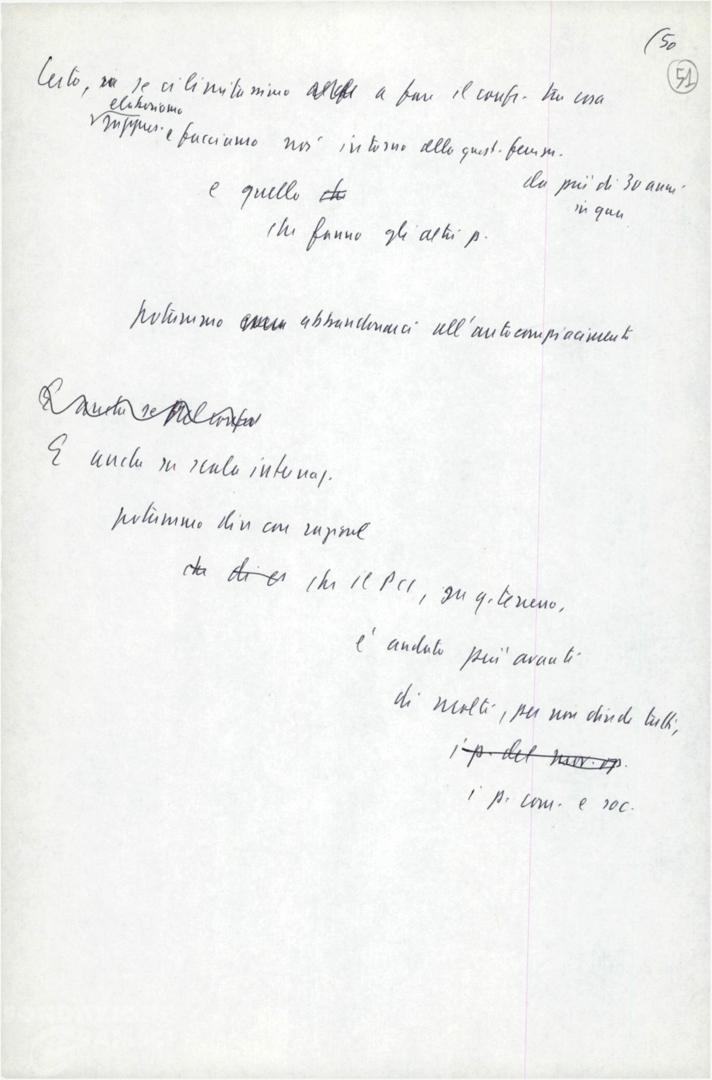 (50
51
Certo, se ci limitassimo a fare il confr. tra cosa
elaboriamo
e facciamo noi intorno alla quest. femm.
da più di 30 anni
in qua
e quello che
che fanno gli altri p.
potremmo abbandonarci all'autocompiacimento
E anche
E anche su scala internaz.
potremmo dire con ragione
che di es che il PCI, su q. terreno,
è andato più avanti
di molti, per non dire di tutti,
i p. del mov. op.
i p. com. e soc.